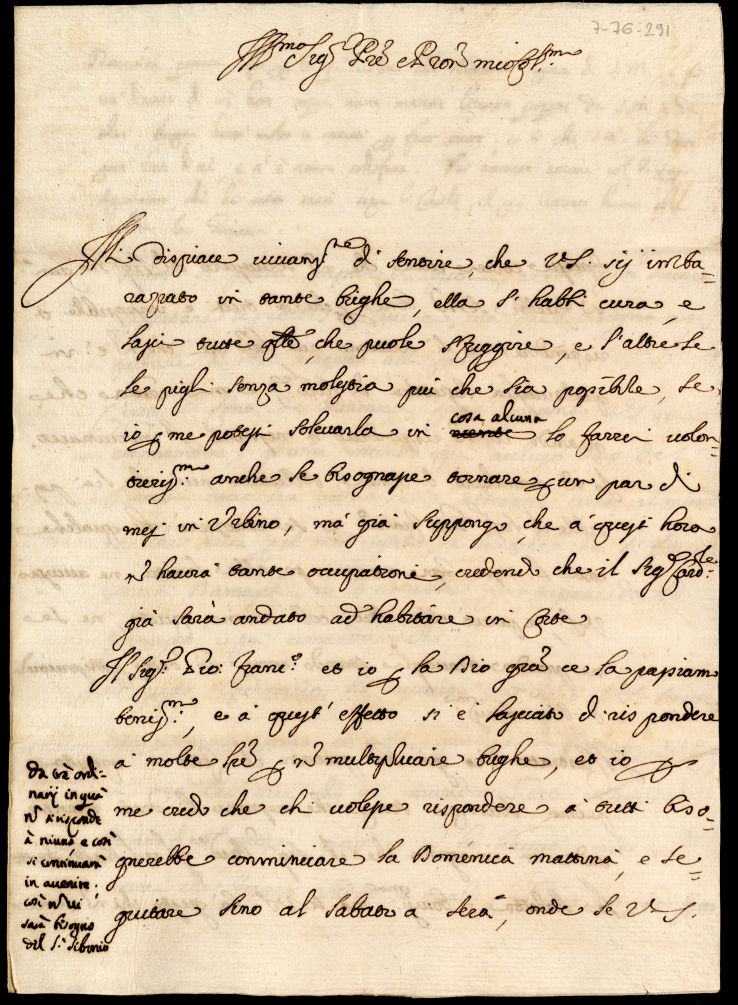 7-76-291
Ill.mo Sig.r P̃re e P̃ron mio Col.mo
Mi dispiace vivam.te di sentire, che V.S. sij imba=
razzato in tante brighe, ella s'habbi cura, e
lasci tutte q̃lle, che puole sfuggire, e l'altre se
le pigli senza molestia più che sia possibile, se
io p me potessi solevarla in niente cosa alcuna lo farrei volon=
tieriss.mo anche se bisognasse tornare p un par di
mesi in Urbino, mà già suppongo, che à quest hora
ñ haurà tante occupationi, credend che il Sig.r Card.le
già sarà andato ad habitare in Corte
Il Sig.r Gio: Franc.o et io p la Dio grã ce la passiam
beniss.mo, e à quest' effetto si è lasciato di rispondere
à molte lr̃e p ñ multiplicare brighe, et io p
me credo che chi volesse rispondere à tutti biso=
gnerebbe comminciare la Domenica mattina, e se=
guitare sino al sabato a serà, onde se V.S.
da trè ordi=
narij in quà
ñ si risponde
à niuno e così
si continuarà
in avenire.
così ñ vi
sarà bisogno
del S.r Sibonio